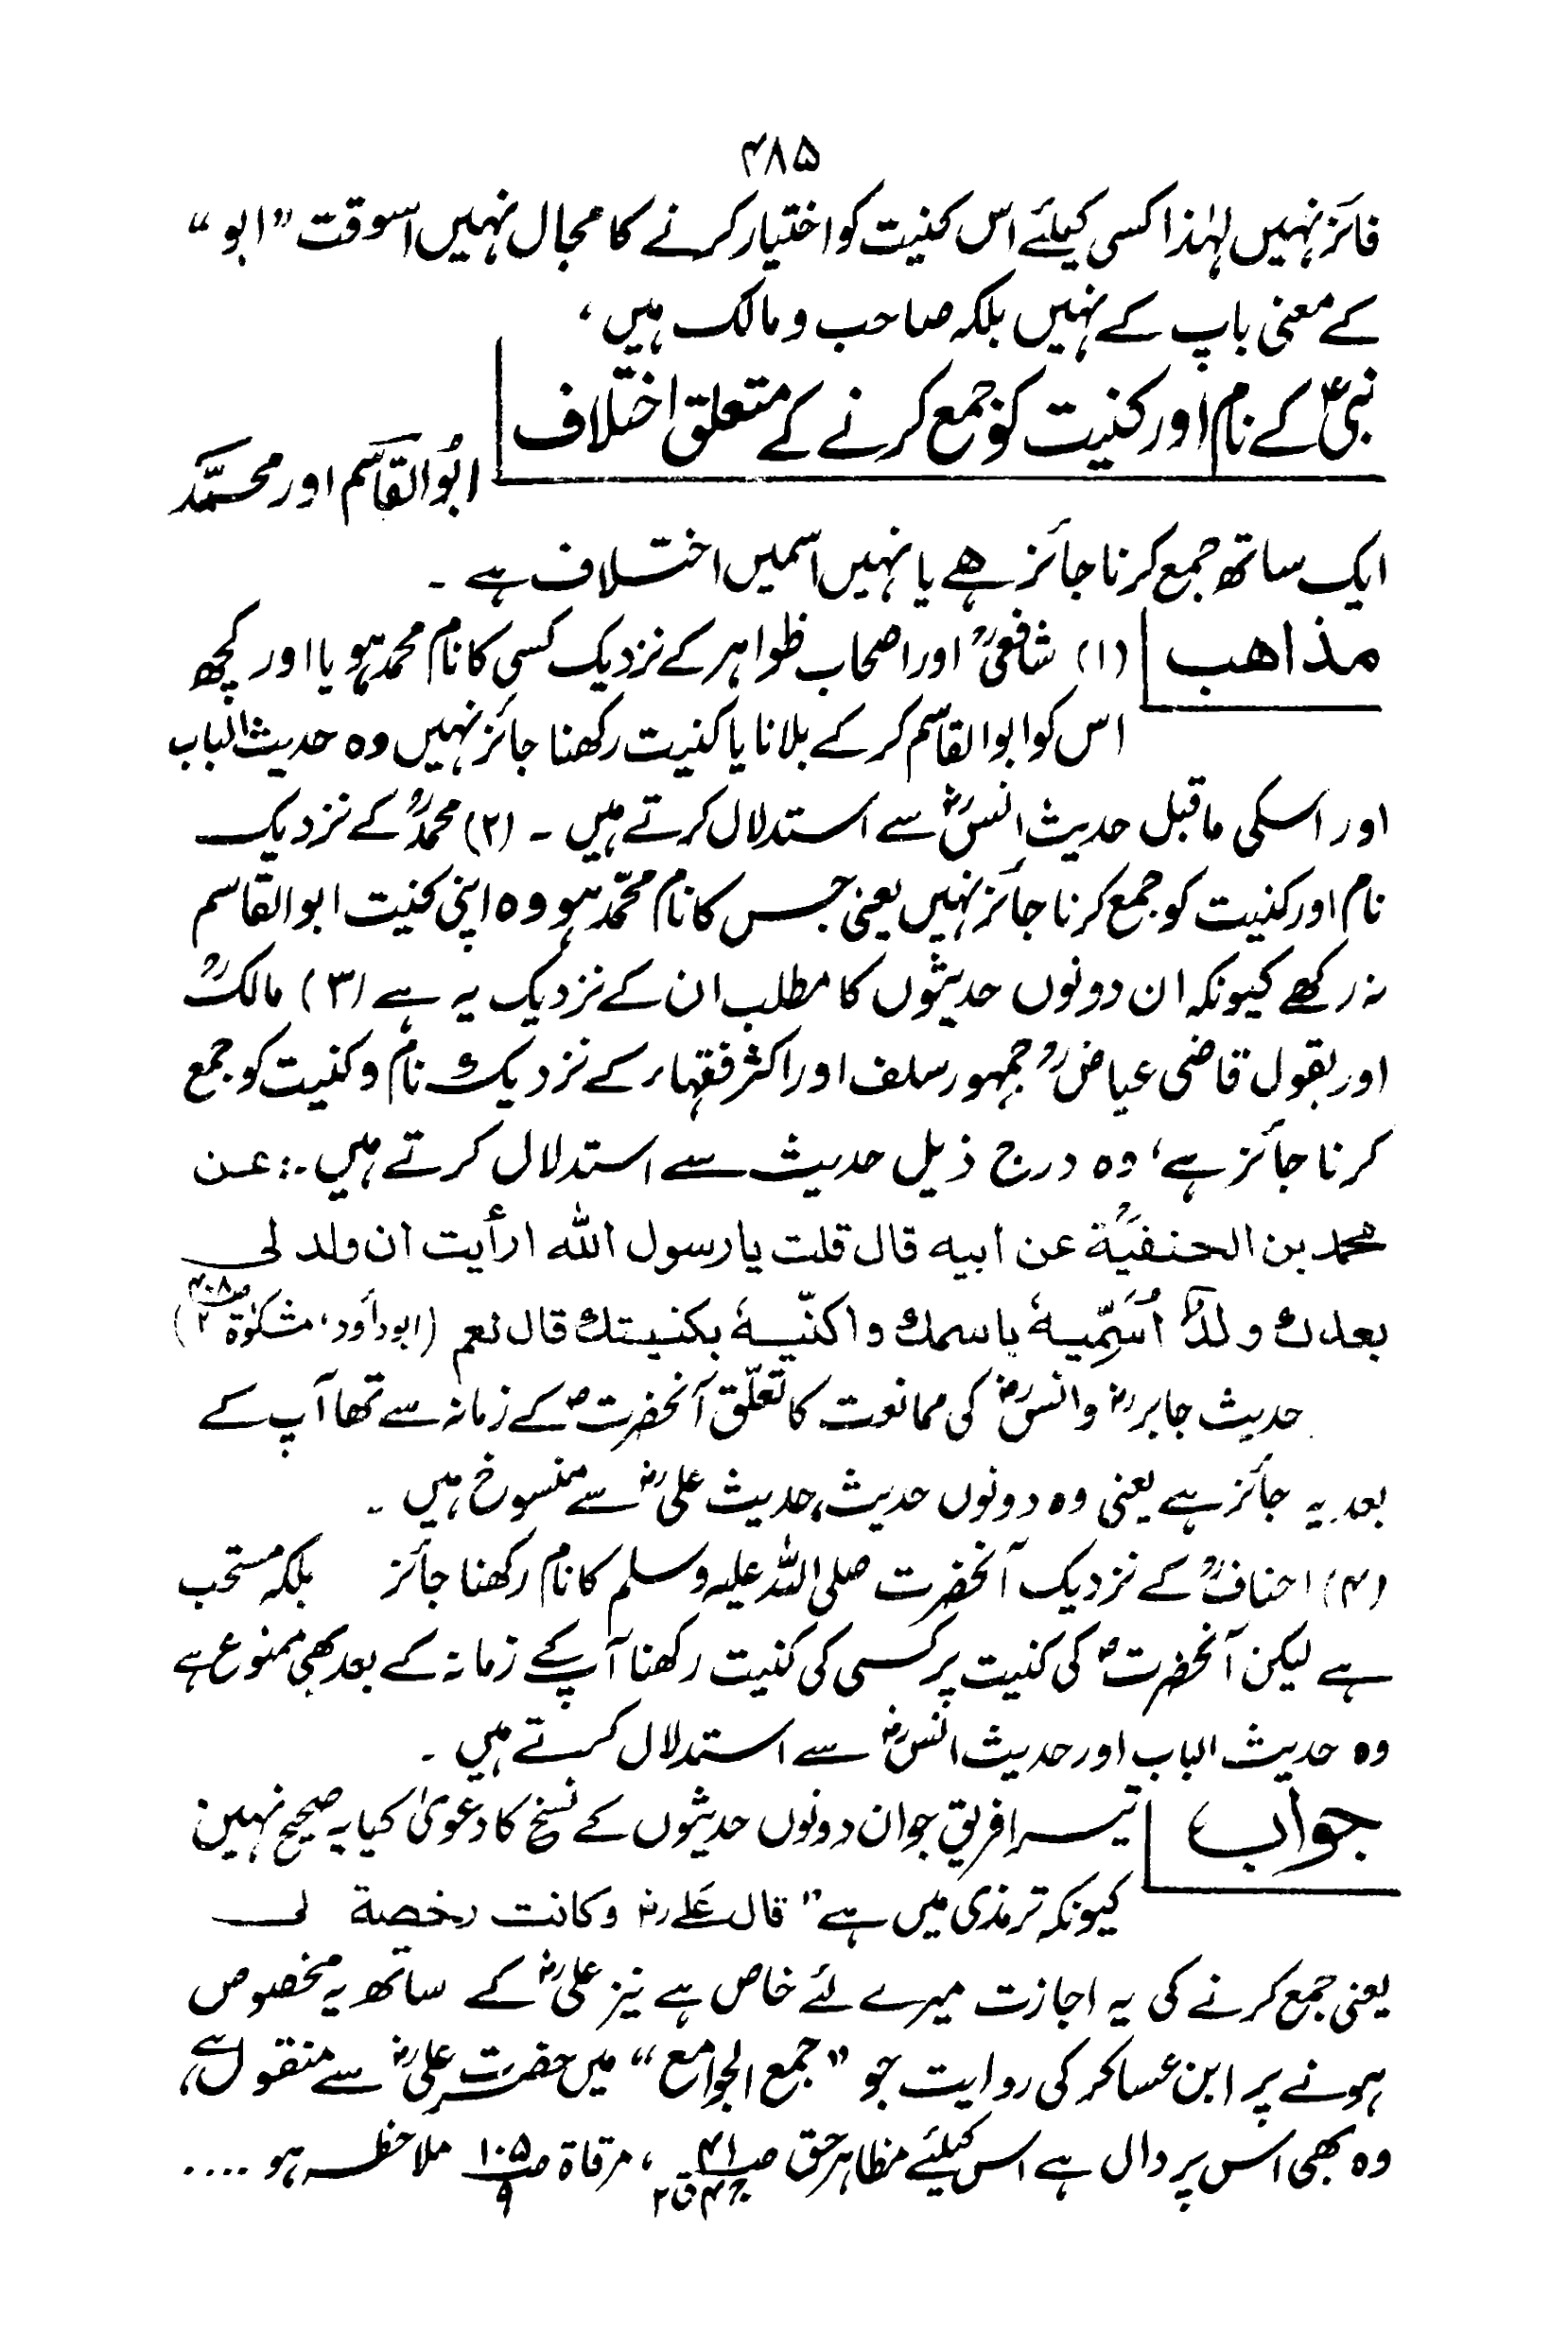 ۴۸۵
فائز نہیں لہٰذا کسی کیلئے اس کنیت کو اختیار کرنے کا مجال نہیں اسوقت ”ابو“
کے معنی باپ کے نہیں بلکہ صاحب و مالک ہیں،
نبیؐ کے نام اور کنیت کو جمع کرنے کے متعلق اختلاف
ابُوالقاسم اور محمَّد
ایک ساتھ جمع کرنا جائز ھے یا نہیں اسمیں اختلاف ہے ۔
مذاھب (۱) شافعیؒ اور اصحاب ظواہر کے نزدیک کسی کا نام محمد ہو یا اور کچھ
اس کو ابوالقاسم کر کے بلانا یا کنیت رکھنا جائز نہیں وہ حدیث الباب
اور اسکی ماقبل حدیث انسؓ سے استدلال کرتے ہیں ۔ (۲) محمدؒ کے نزدیک
نام اور کنیت کو جمع کرنا جائز نہیں یعنی جس کا نام محمّد ہو وہ اپنی کنیت ابوالقاسم
نہ رکھے کیونکہ ان دونوں حدیثوں کا مطلب ان کے نزدیک یہ ہے (۳) مالکؒ
اور بقول قاضی عیاضؒ جمہور سلف اور اکثر فقہاء کے نزدیک نام و کنیت کو جمع
کرنا جائز ہے، وہ درج ذیل حدیث سے استدلال کرتے ہیں :۔ عن
محمد بن الحنفیّۃ عن ابیہ قال قلت یارسول اللہ ارأیت ان ولد لی
بعدك ولدٌ اُسَمِّیہٗ باسمك واكنّیہٗ بكنیتك قال نعم (ابوداؤد، مشکوٰۃ ص۴۰۸ ۲)
حدیث جابرؓ وانسؓ کی ممانعت کا تعلّق آنحضرتؐ کے زمانہ سے تھا آپ کے
بعد یہ جائز ہے یعنی وہ دونوں حدیث، حدیث علیؓ سے منسوخ ہیں ۔
(۴) احنافؒ کے نزدیک آنحضرت صلی اللہ علیہ وسلم کا نام رکھنا جائز بلکہ مستحب
ہے لیکن آنحضرتؐ کی کنیت پر کسی کی کنیت رکھنا آپ کے زمانہ کے بعد بھی ممنوع ہے
وہ حدیث الباب اور حدیث انسؓ سے استدلال کرتے ہیں ۔
جواب تیسرا فریق جو ان دونوں حدیثوں کے نسخ کا دعویٰ کیا یہ صحیح نہیں
کیونکہ ترمذی میں ہے ”قال عَلیؓ وکانت رخصة لی
یعنی جمع کرنے کی یہ اجازت میرے لئے خاص ہے نیز علیؓ کے ساتھ یہ مخصوص
ہونے پر ابن عساکر کی روایت جو ”جمع الجوامع“ میں حضرت علیؓ سے منقول ہے،
وہ بھی اس پر دال ہے اس کیلئے مظاہر حق ص۴۱ ج۴ ق۲، مرقاۃ ص۱۰۵ ۹ ملاحظہ ہو ....